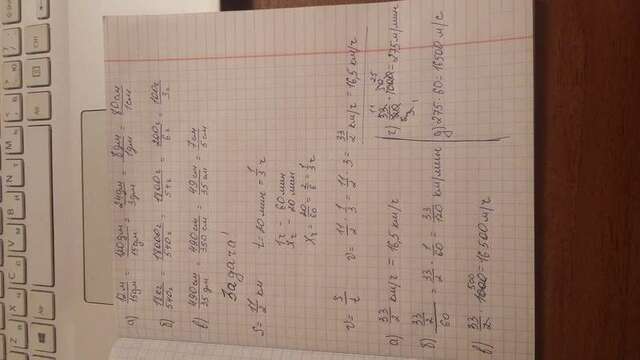 а) 12м/15дм = 120дм/15дм = 24дм/3дм = 8дм/1дм = 80см/1см
б) 18кг/540г = 18000г/540г = 1800г/54г = 200г/6г = 100г/3г
в) 490см/35дм = 490см/350см = 49см/35см = 7см/5см
Задача!
S = 11/2 км t = 20 мин = 1/3 ч
1ч - 60 мин
Xч - 20 мин
Xч = 20/60 = 2/6 = 1/3 ч
v = S/t v = 11/2 : 1/3 = 11/2 · 3 = 33/2 км/ч = 16,5 км/ч
а) 33/2 км/ч = 16,5 км/ч
б) 33/2/60 = 33/2 · 1/60 = 33/120 км/мин
в) 33/2 · 1000 500 = 16500 м/ч
г) 33/120 · 1000 = 275 м/мин
д) 275 · 60 = 16500 м/с